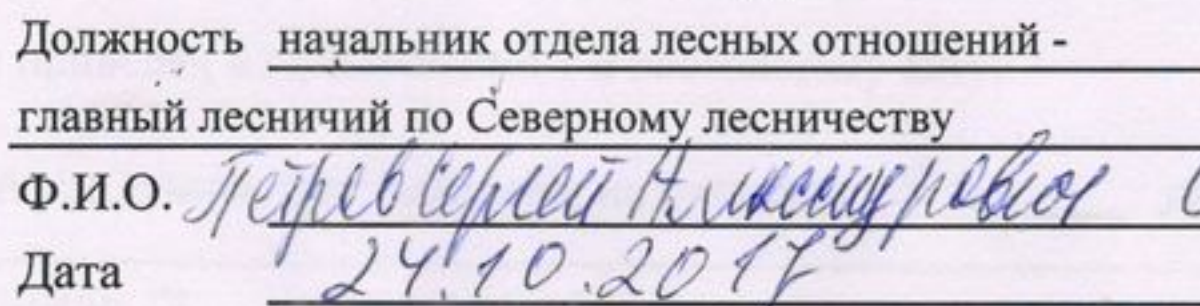 Должность начальник отдела лесных отношений -
главный лесничий по Северному лесничеству
Ф.И.О. Петров Сергей Александрович
Дата 24.10.2017